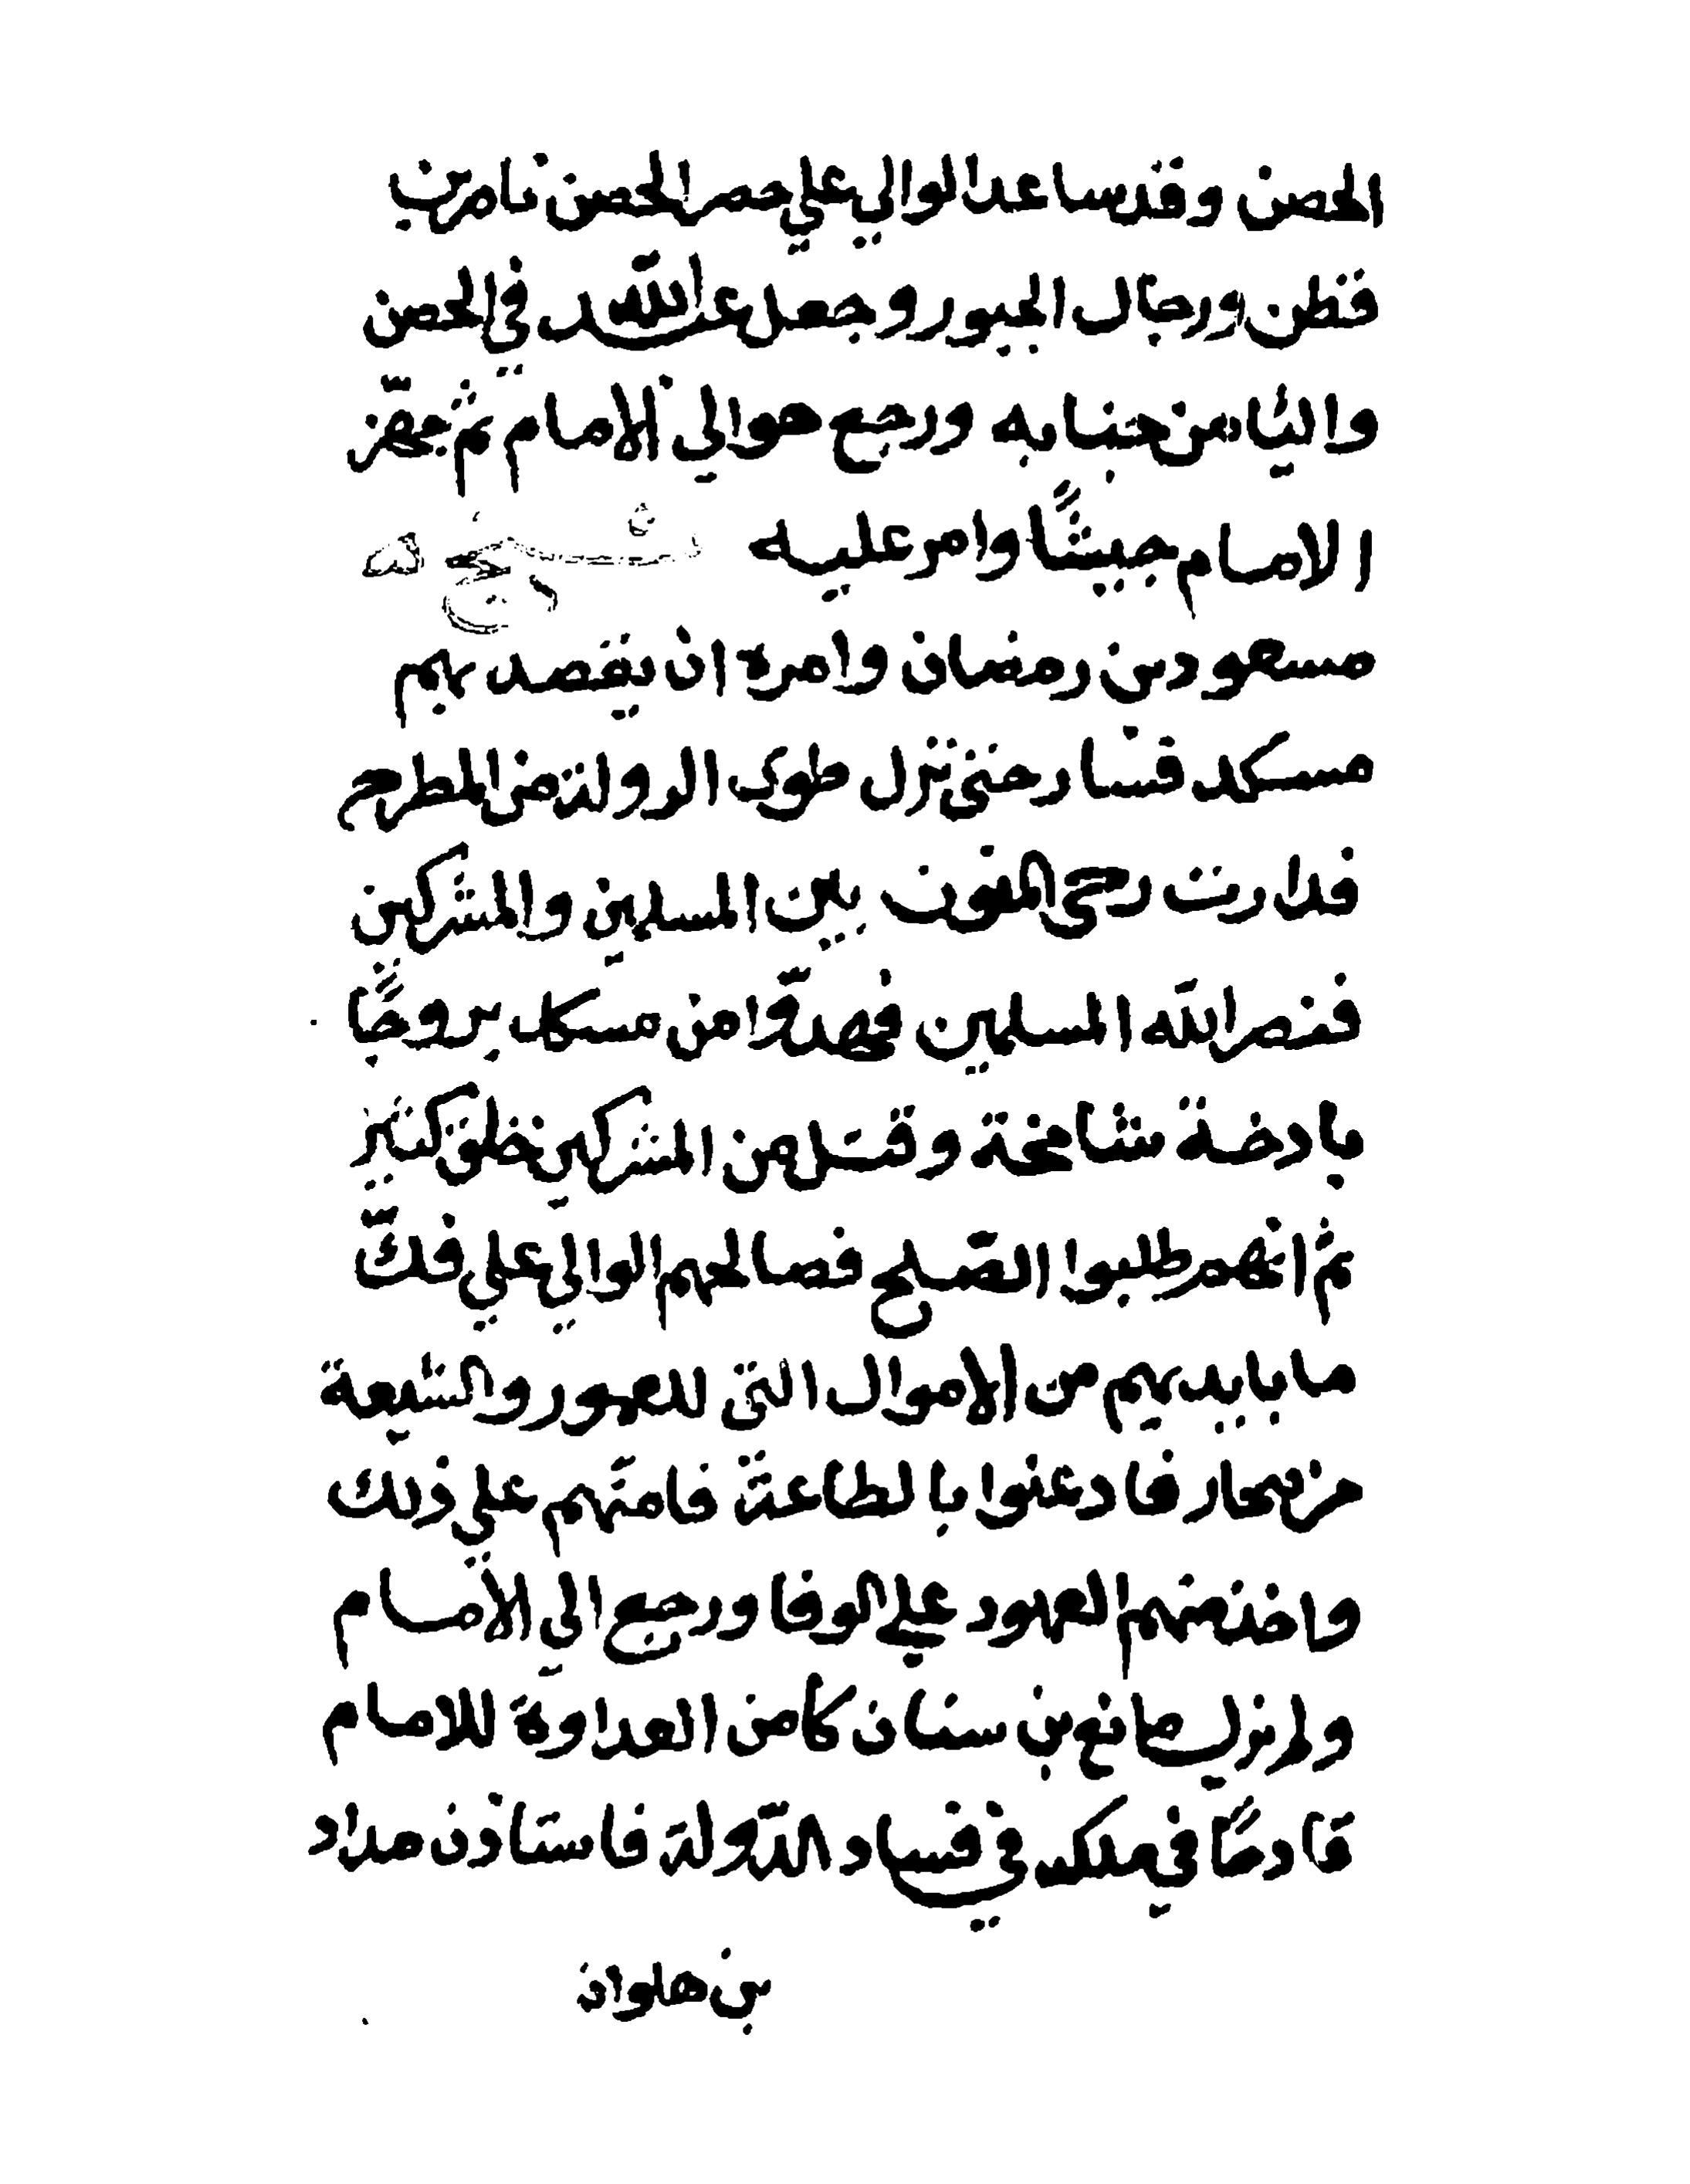 الحصن وقد ساعد الوالي علي حصر الحصن ناصر بن
قطن ورجال الجبور وجعل عبد الله في الحصن
واليًا من جنابه ورجع هو الي الامام ثم جهّز
الامام جيشًا وامر عليه
مسعود بن رمضان وامره ان يقصد بهم
مسكد فسار حتى نزل طوى الرولة من المطرح
فدارت رحى المنون بين المسلمين والمشركين
فنصر الله المسلمين فهدّوا من مسكد بروجًا
باذخة شامخة وقتل من المشركين خلق كثير
ثم انهم طلبوا الصّلح فصالحهم الوالي علي فكّ
ما بايديهم من الاموال التي للعمور والشيعة
من صحار فادعنوا بالطاعة فامنّهم علي ذلك
واخذ منهم العهود علي الوفا ورجع الي الامام
ولم يزل مانع بن سنان كامن العداوة للامام
قادحًا في ملكه في فساد الدّولة فاستاذن مداد
بن هلوان